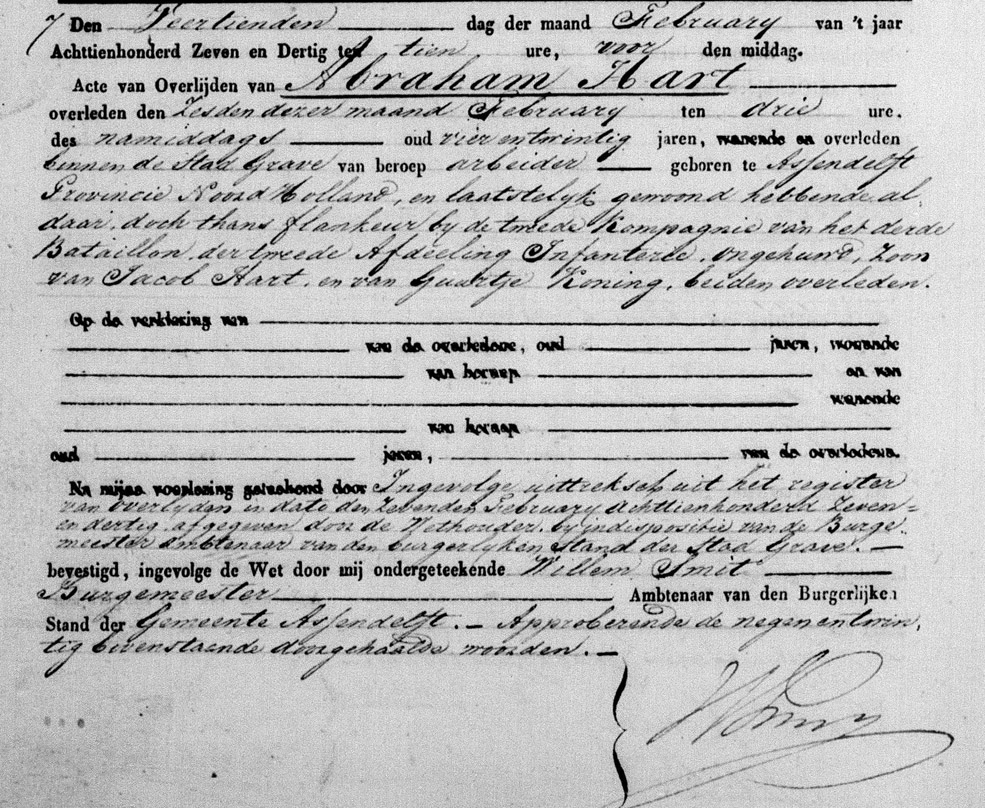 7 Den Veertienden dag der maand February van 't jaar
Achttienhonderd Zeven en Dertig te tien ure, voor den middag.
Acte van Overlijden van Abraham Hart
overleden den Zesden dezer maand February ten drie ure.
des namiddags oud vier en twintig jaren, wonende en overleden
binnen de Stad Grave van beroep arbeider geboren te Assendelft
Provincie Noord Holland, en laatstelyk gewoond hebbende al,
daar, doch thans flankeur by de tweede Kompagnie van het derde
Bataillon der tweede Afdeeling Infanterie, ongehuwd, Zoon
van Jacob Hart, en van Guurtje Koning, beiden overleden.
Op de verklaring van
van de overledene, oud jaren, wonende
van beroep en van
wonende
van beroep
oud jaren, van de overledene.
Na mijne voorlezing geteekend door Ingevolge uittreksel uit het register
van overlyden in dato den Zevenden February achttienhonderd Zeven=
en dertig, afgegeven door de Wethouder by indispositie van de Burge,
meester Ambtenaar van den burgerlyken Stand der Stad Grave. —
bevestigd, ingevolge de Wet door mij ondergeteekende Willem Smit
Burgemeester Ambtenaar van den Burgerlijken
Stand der Gemeente Assendelft. — Approberende de negen entwin,
tig bovenstaende doorgehaalde woorden. —
WSmit